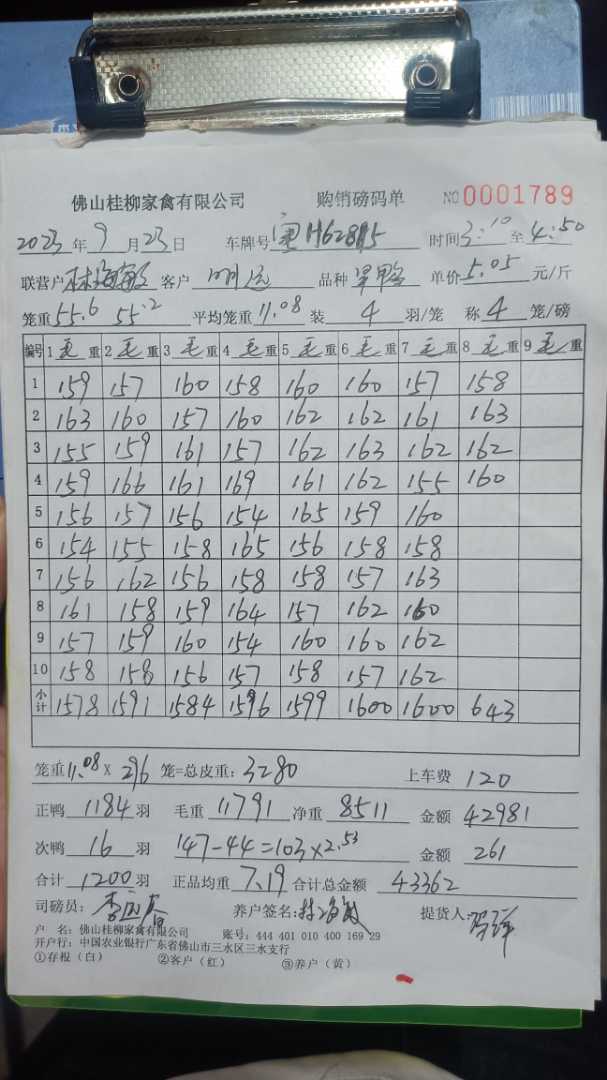 佛山桂柳家禽有限公司 购销磅码单 NO 0001789
2023年9月23日 车牌号 粤H62815 时间3:10至4:50
联营户 客户 明远 品种 旱鸭 单价5.05元/斤
笼重55.6 55.2 平均笼重11.08 装4羽/笼 称4笼/磅
编号 1毛重 2毛重 3毛重 4毛重 5毛重 6毛重 7毛重 8毛重 9毛重
1 159 157 160 158 160 160 157 158
2 163 160 157 160 162 162 161 163
3 155 159 161 157 162 163 162 162
4 159 166 161 169 161 162 155 160
5 156 157 156 154 165 159 160
6 154 155 158 165 156 158 158
7 156 162 156 158 158 157 163
8 161 158 159 164 157 162 160
9 157 159 160 154 160 160 162
10 158 158 156 157 158 157 162
小计 1578 1591 1584 1596 1599 1600 1600 643
笼重11.08×296笼=总皮重:3280 上车费120
正鸭1184羽 毛重11791净重8511金额42981
次鸭16羽 147-44=103×2.53 金额261
合计1200羽 正品均重7.19合计总金额43362
司磅员: 养户签名: 提货人:
户 名:佛山桂柳家禽有限公司 账号:444 401 010 400 169 29
开户行:中国农业银行广东省佛山市三水区三水支行
①存根(白) ②客户(红) ③养户(黄)